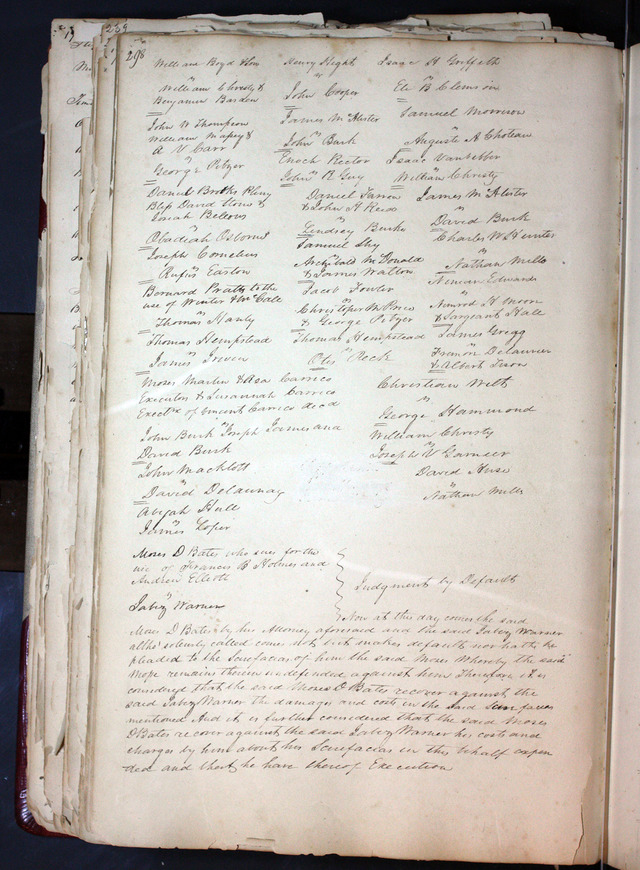 298
William Boyd & Son
vs
William Christy &
Benjamin Barden
John W Thompson
vs
William Massey &
A V Carr
George Pitzer
Daniel Brooks Pleny
Blep David Howe &
Josiah Bellows
vs
Obadiah Osborns
Joseph Cornelius
vs
Rufus Easton
Bernard Pratte to the
use of Winter & McCall
vs
Thomas Hanly
Thomas Hempstead
vs
James Irwin
Moses Martin & Asa Carrico
Executors & Susannah Carrico
Exectrx of Vincent Carrico decd
vs
John Burk Joseph Jamesana
David Burk
John Macklott
vs
David Delaunay
Abijah Hull
vs
James Loper
Henry Hight
vs
John Cooper
James McAlister
vs
John Burk
Enoch Rector
vs
John R Guy
Daniel Farrow
& John H Reids
vs
Lindsey Burke
Samuel Shy
Archibald McDonald
& James Walton
vs
Jacob Fowler
Christoper M Price
& George Pitzer
Thomas Hempstead
vs
Otis Peck
Isaac H Griffith
vs
Eli B Clemson
Samuel Morrison
vs
Auguste A Choteau
Isaac Vanbibber
vs
William Christy
James McAlister
vs
David Burk
Charles W Hunter
vs
Nathan Mills
Ninian Edwards
vs
Nimrod H Moon
& Sargeant Hall
James Gregg
vs
Delaurier
& Albert Tison
Christian Wilt
vs
George Hammond
William Christy
vs
Joseph V Garnier
David
vs
Nathan Mills
Moses D Bates who sues for the
use of Francis B Holmes and
Andrew Elliott
vs
Jabez Warner
Judgment by Default
Now at this day comes the said
Moses D Bates by his Attorney aforesaid and the said Jabez Warner
altho' solemly called comes not but makes default nor hath he
pleaded to the Scirefacias of him the said Moses Whereby the said
Mose remains therein undefended against him Therefore it is
considered that the said Moses D Bates recover against the
said Jabez Warner the damages and costs in the said Scirefacias
mentioned And it is further considered that the said Moses
D Bates recover against the said Jabez Warner his costs and
charges by him about his Scirefacias in this behalf expen
ded and that he have thereof Execution